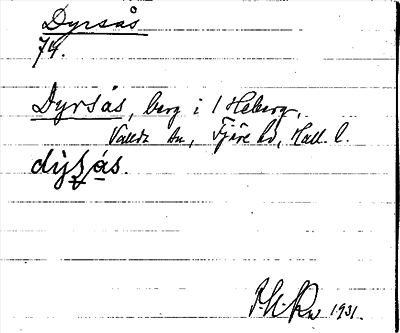 Dyrsås
74.
Dyrsås, berg i 1 Heberg,
Vallda sn, Fjäre hd, Hall. l.
1931.